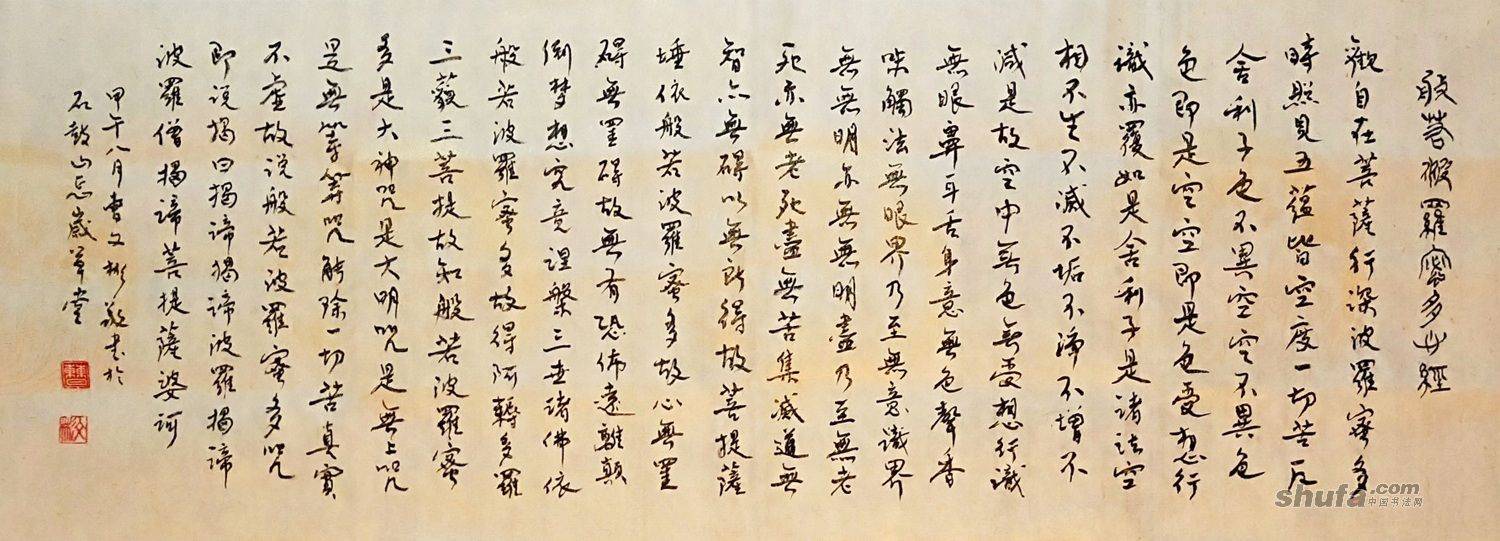 般若般羅蜜多心經
觀自在菩薩行深波羅蜜多
時照見五蘊皆空度一切苦厄
舍利子色不異空空不異色
色即是空空即是色受想行
識亦覆如是舍利子是諸法空
相不生不滅不垢不淨不增不
減是故空中無色無受想行識
無眼鼻耳舌身意無色聲香
味觸法無眼界乃至無意識界
無無明亦無無明盡乃至無老
死亦無老死盡無苦集滅道無
智亦無碍以無所得故菩提薩
埵依般若波羅蜜多故心無罣
碍無罣碍故無有恐怖遠離顛
倒夢想究竟涅槃三世諸佛依
般若波羅蜜多故得阿耨多羅
三藐三菩提故知般若波羅蜜
多是大神咒是大明咒是無上咒
是無等等咒能除一切苦真實
不虛故说般若波羅蜜多咒
即说揭曰揭諦揭諦波羅揭諦
波羅僧揭諦菩提薩婆訶
甲午八月曹文彬敬书於
石鼓山忘歲草堂
shufa.com
中国书法网